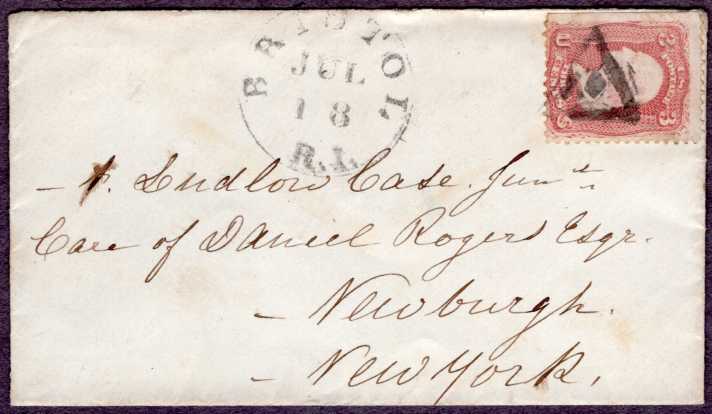 BRISTOL
JUL
18
R.I.
U S
3 3
- A. Ludlow Case. Junr.
Care of Daniel Rogers Esqr.
- Newburgh.
- New York.